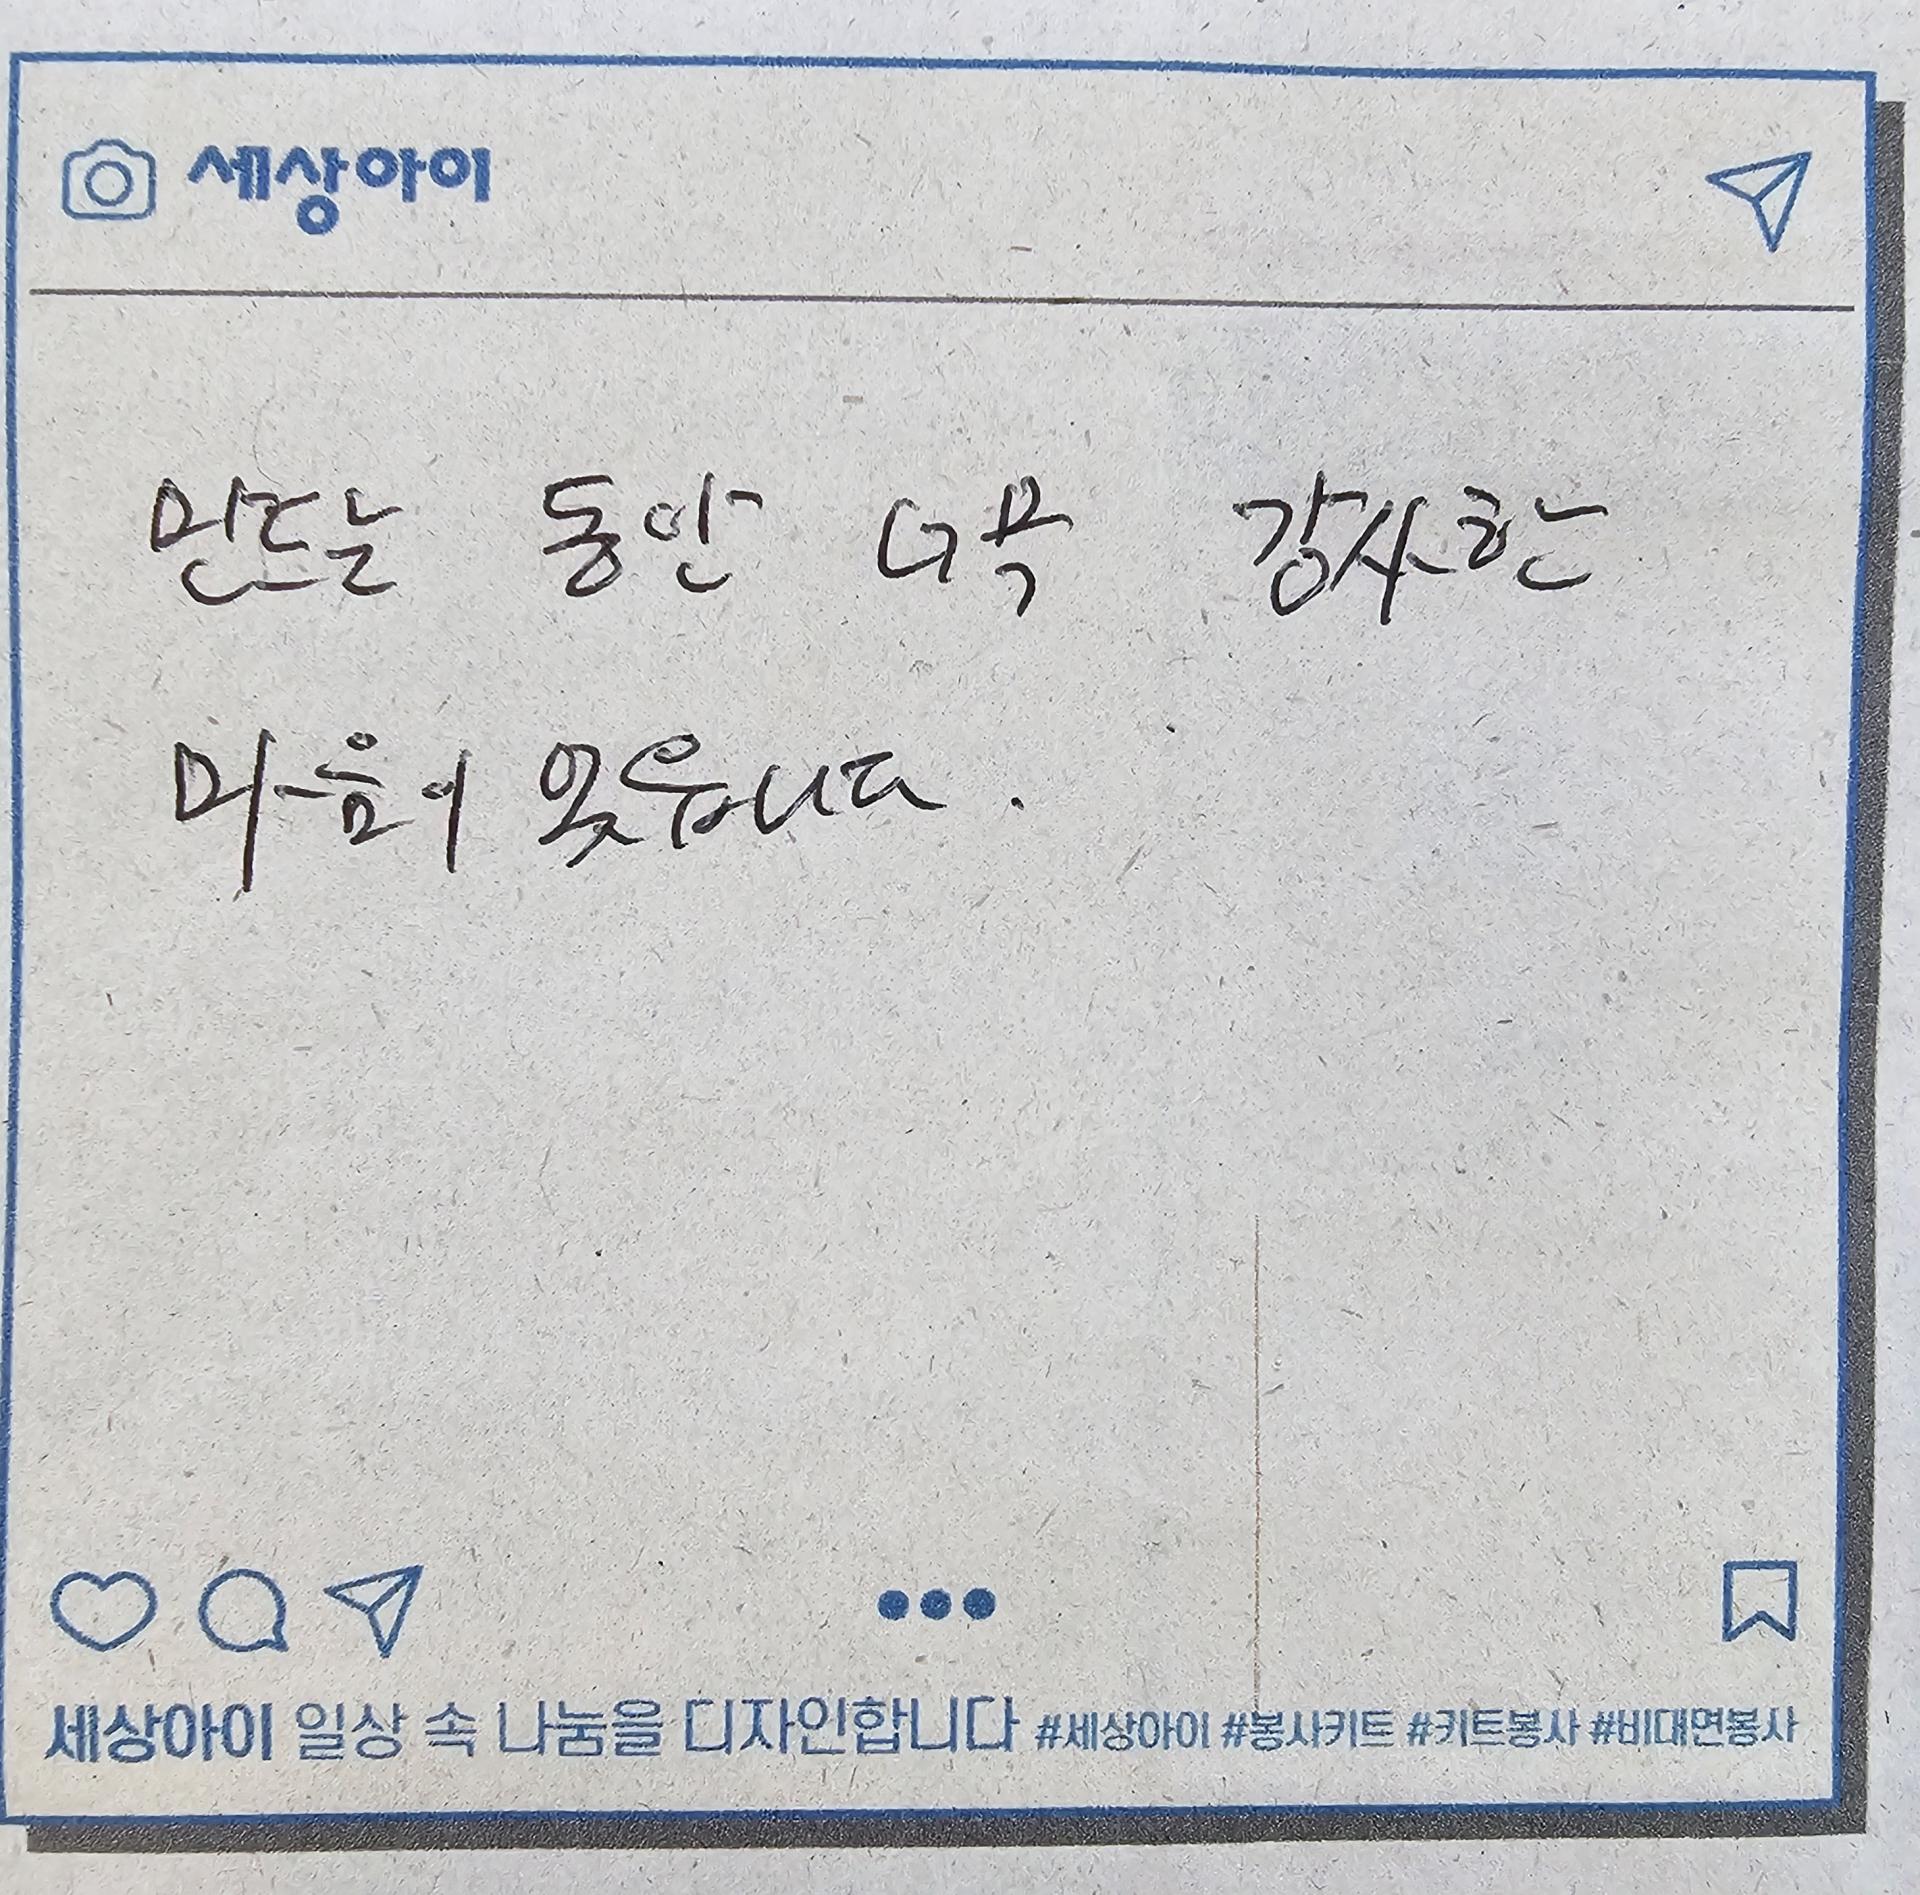 세상아이
만드는 동안 더욱 감사한
마음이
세상아이 일상 속 나눔을 디자인합니다 #세상아이 #봉사키트 #키트봉사 #비대면봉사